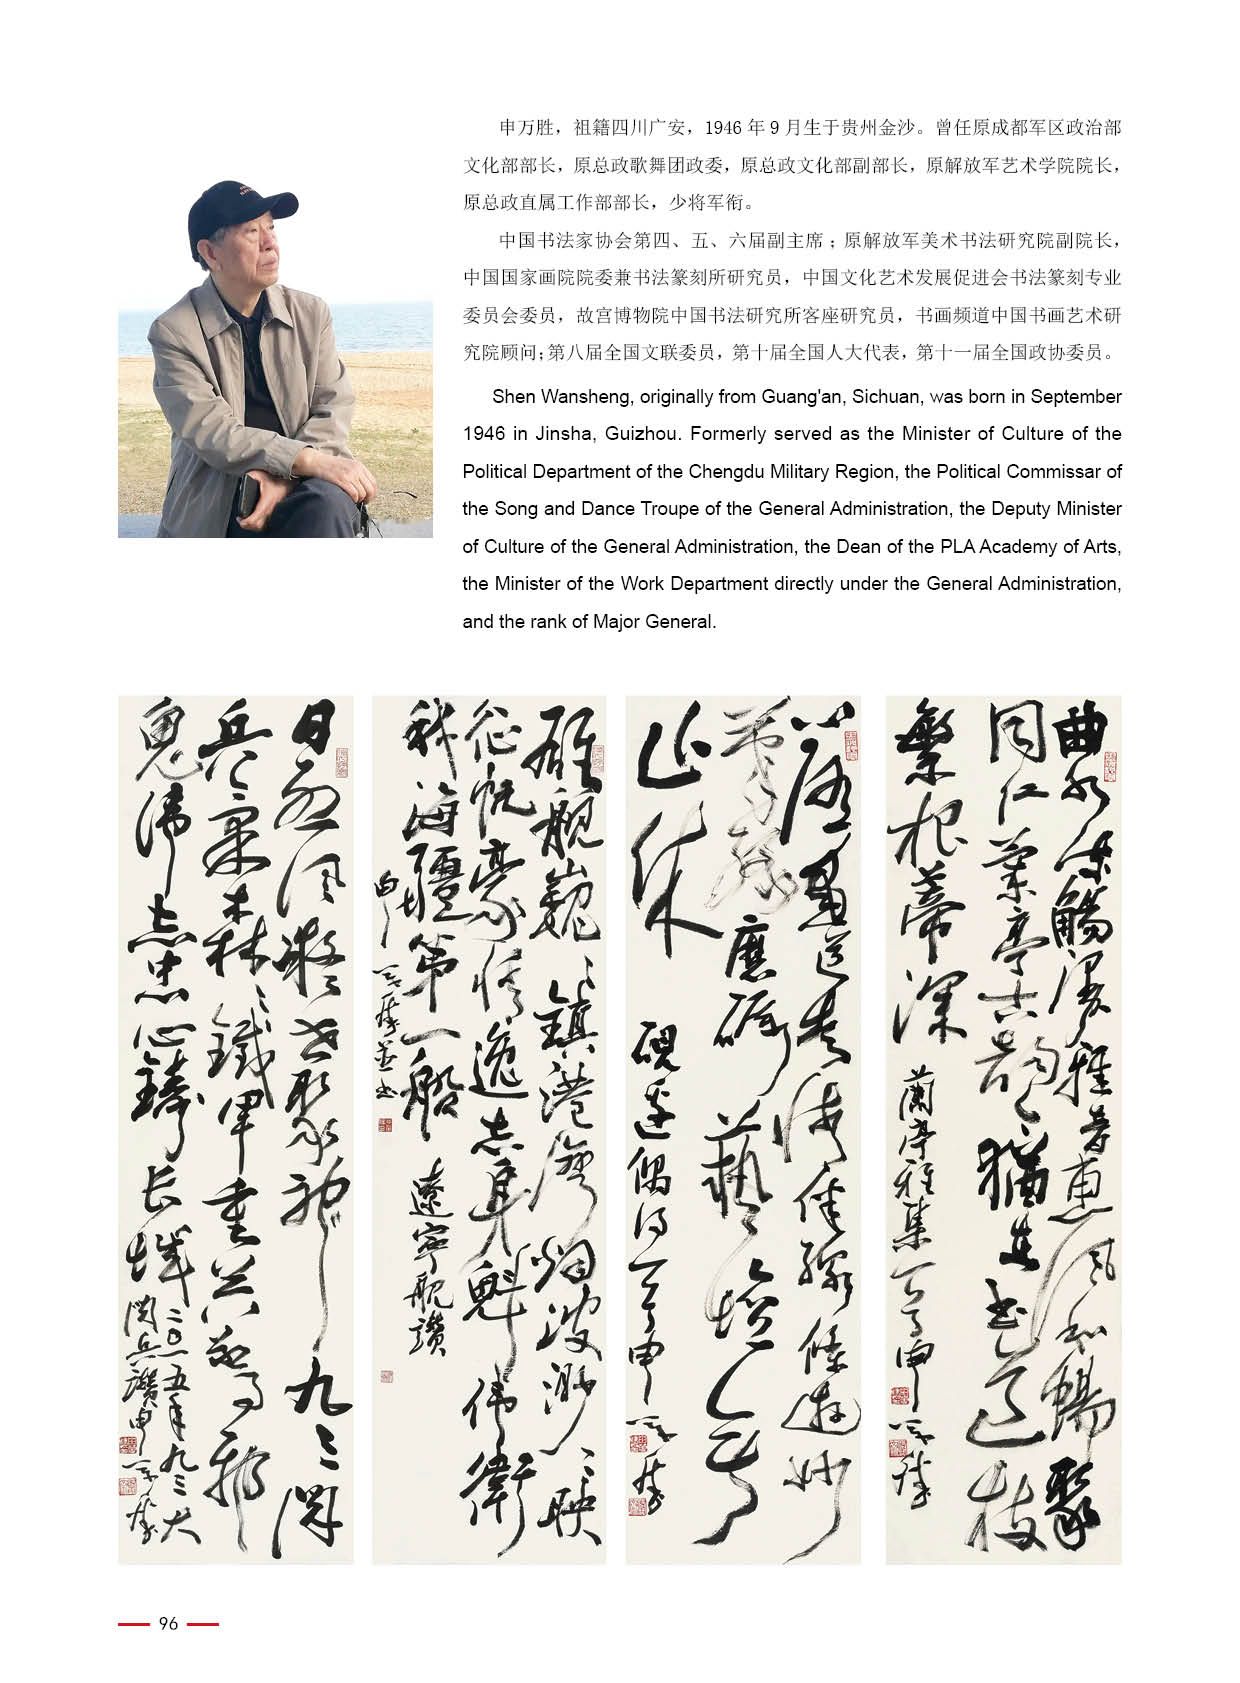 申万胜，祖籍四川广安，1946 年 9 月生于贵州金沙。曾任原成都军区政治部
文化部部长，原总政歌舞团政委，原总政文化部副部长，原解放军艺术学院院长，
原总政直属工作部部长，少将军衔。
中国书法家协会第四、五、六届副主席；原解放军美术书法研究院副院长，
中国国家画院院委兼书法篆刻所研究员，中国文化艺术发展促进会书法篆刻专业
委员会委员，故宫博物院中国书法研究所客座研究员，书画频道中国书画艺术研
究院顾问；第八届全国文联委员，第十届全国人大代表，第十一届全国政协委员。
Shen Wansheng, originally from Guang'an, Sichuan, was born in September
1946 in Jinsha, Guizhou. Formerly served as the Minister of Culture of the
Political Department of the Chengdu Military Region, the Political Commissar of
the Song and Dance Troupe of the General Administration, the Deputy Minister
of Culture of the General Administration, the Dean of the PLA Academy of Arts,
the Minister of the Work Department directly under the General Administration,
and the rank of Major General.
曲水流觞浸雅音惠风和畅聚
同仁兰亭古韵犹在书道枝
繁根蒂深
兰亭雅集
墨道
应砺艺境
止休
砚边偶得
舰巍巍镇港湾烟波渺渺映
征帆豪情逸志军魁伟卫
海疆第一船
辽宁舰赞
日风凝九
兵气森森铁甲重
忠心铸长城
二〇一五年九三大
阅兵赞申
96